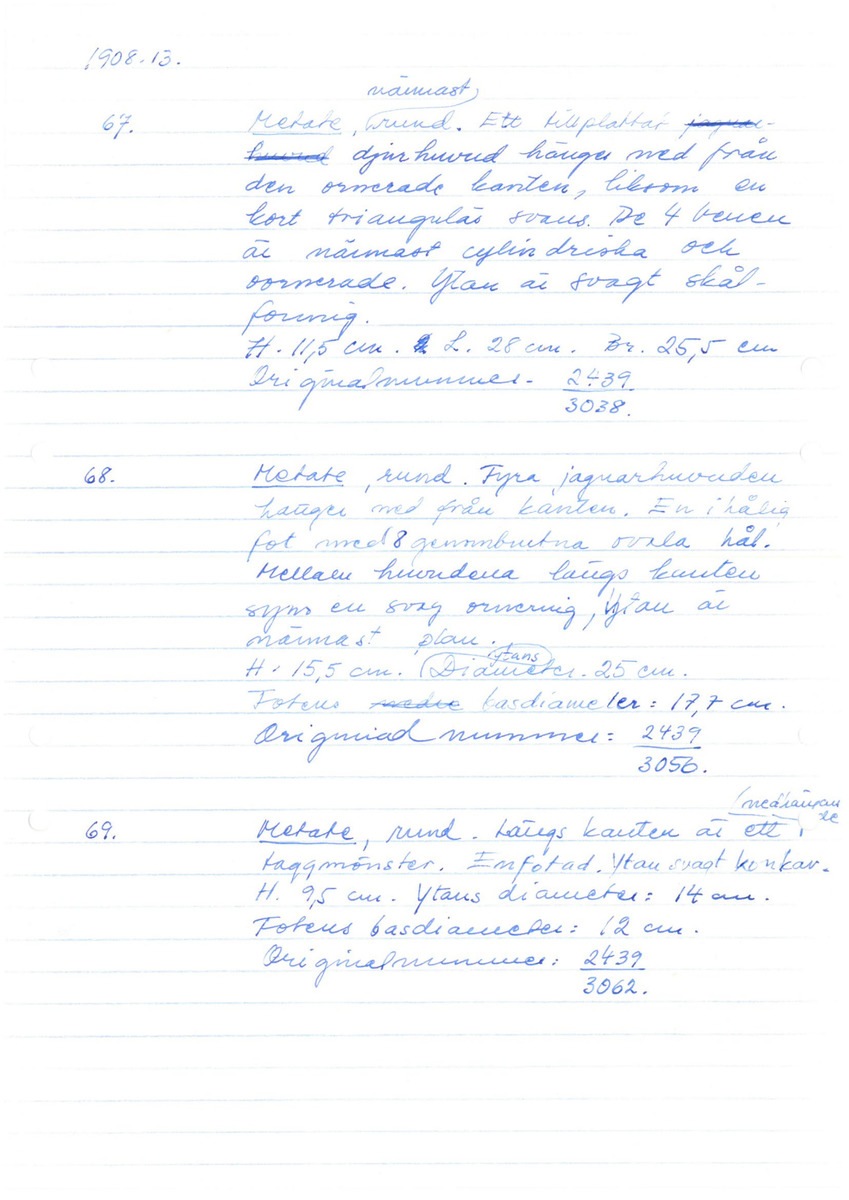 1908.13.
närmast
67. Metate, rund. Ett tillplattat jaguar-
huvud djurhuvud hänger ned från
den ornerade kanten, liksom en
kort triangulär svans. De 4 benen
är närmast cylindriska och
oornerade. Ytan är svagt skål-
formig.
H. 11,5 cm. L. 28 cm. Br. 25,5 cm
Originalnummer. 2439
3038.
68. Metate, rund. Fyra jaguarhuvuden
hänger ned från kanten. En ihålig
fot med 8 genombrutna ovala hål.
Mellan huvudena längs kanten
syns en svag ornering, Ytan är
närmast plan.
ytans
H. 15,5 cm. Diameter. 25 cm.
Fotens nedre basdiameter: 17,7 cm.
Original nummer: 2439
3056.
nedhängan
de
69. Metate, rund. Längs kanten är ett
taggmönster. Enfotad. Ytan svagt konkav.
H. 9,5 cm. Ytans diameter: 14 cm.
Fotens basdiameter: 12 cm.
Originalnummer: 2439
3062.